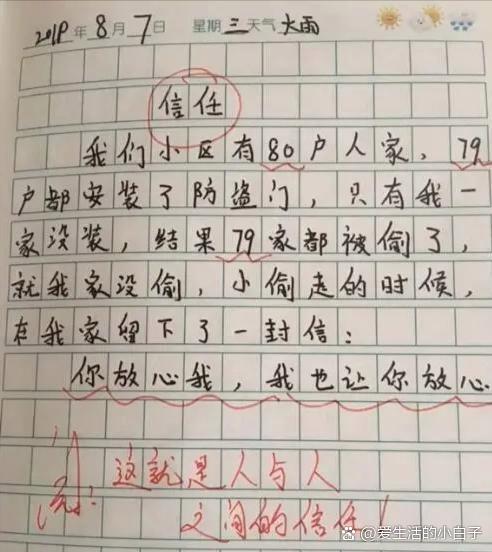 2019年8月7日 星期三天气大雨
信任
我们小区有80户人家，79
户都安装了防盗门，只有我一
家没装，结果79家都被偷了，
就我家没偷，小偷走的时候，
在我家留下了一封信：
你放心我，我也让你放心
这就是人与人
之间的信任！
知乎 @爱生活的小白子